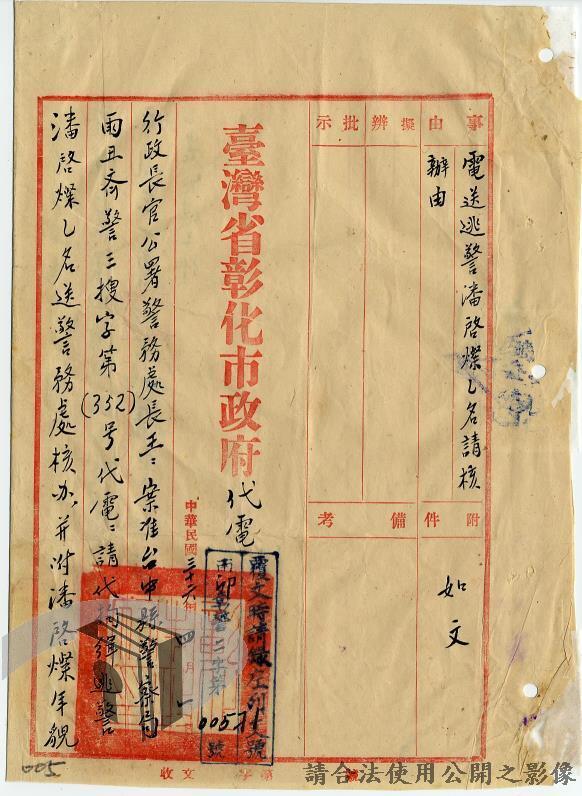 事由
電送逃警潘啓燦乙名請核
辦由
擬辦
批示
附件
如文
備考
臺灣省彰化市政府
代電
中華民國三十六年四月
覆文時請錄左印文號
第
號
行政長官公署警務處長王：案准台中縣警察局
雨丑齊警三搜字第(352)号代電：請代拘緝逃警
潘啓燦乙名送警務處核办，并附潘啓燦年貌
收文
字第
號
005
請合法使用公開之影像